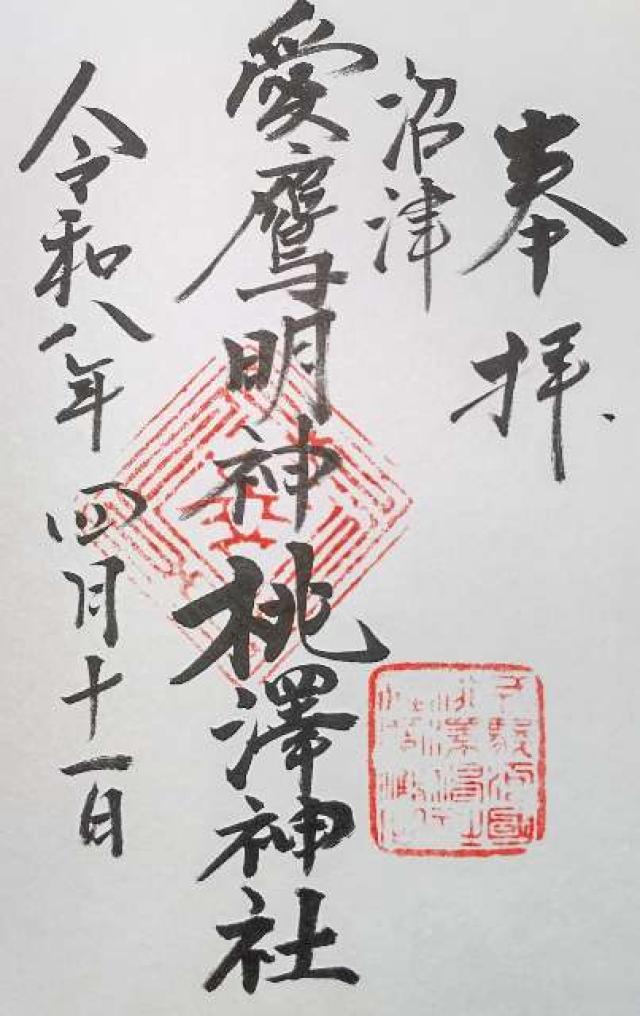 奉拝
沼津
愛鷹明神桃澤神社
令和八年四月十一日